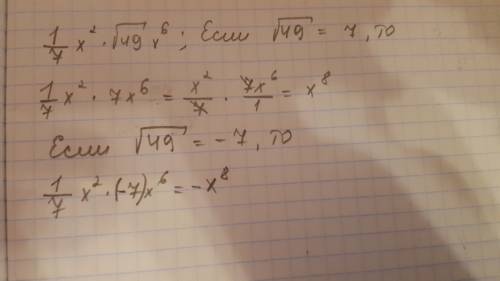 1/7 x² · √49 x⁶; Если √49 = 7, то
1/7 x² · 7x⁶ = x²/7 · 7x⁶/1 = x⁸
Если √49 = -7, то
1/7 x² · (-7)x⁶ = -x⁸